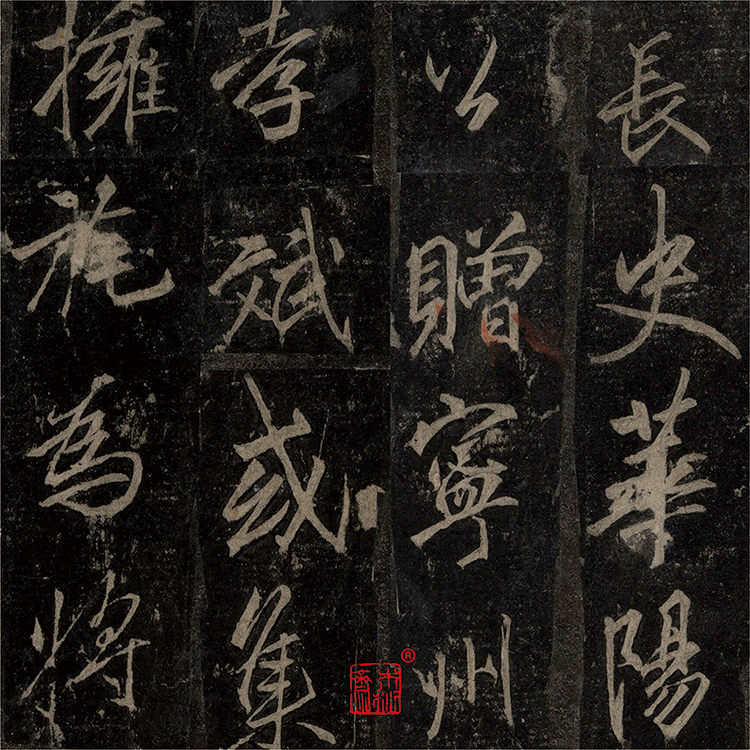 長史華陽
公贈寧州
孝斌或集
擁旄為將
®